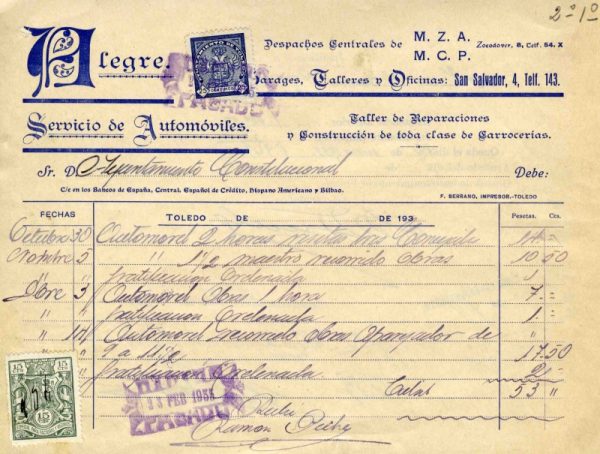 2º 1º
Alegre.
Despachos Centrales de M. Z. A. Zocodover, 8, Telf. 54. X
M. C. P.
Garages, Talleres y Oficinas: San Salvador, 4, Telf. 143.
PAGADO
Servicio de Automóviles.
Taller de Reparaciones
y Construcción de toda clase de Carrocerías.
Sr. D. Ayuntamiento Constitucional Debe:
C/c en los Bancos de España, Central, Español de Crédito, Hispano Americano y Bilbao.
F. SERRANO, IMPRESOR.-TOLEDO
FECHAS TOLEDO DE DE 193 Pesetas. Cts.
Octubre 30 Automovil 2 horas visita 14
5 " " maestro recorrido Obras 10 50
Gratificacion Ordenada 1
Dbre 3 Automovil Obras 1 hora 7
" " Gratificacion Ordenada 1 "
" 10 Automovil obras de
17 50
" " Gratificacion Ordenada 2
53 "
13 FEB
PAGADO
Recibí
Ramon
15 15